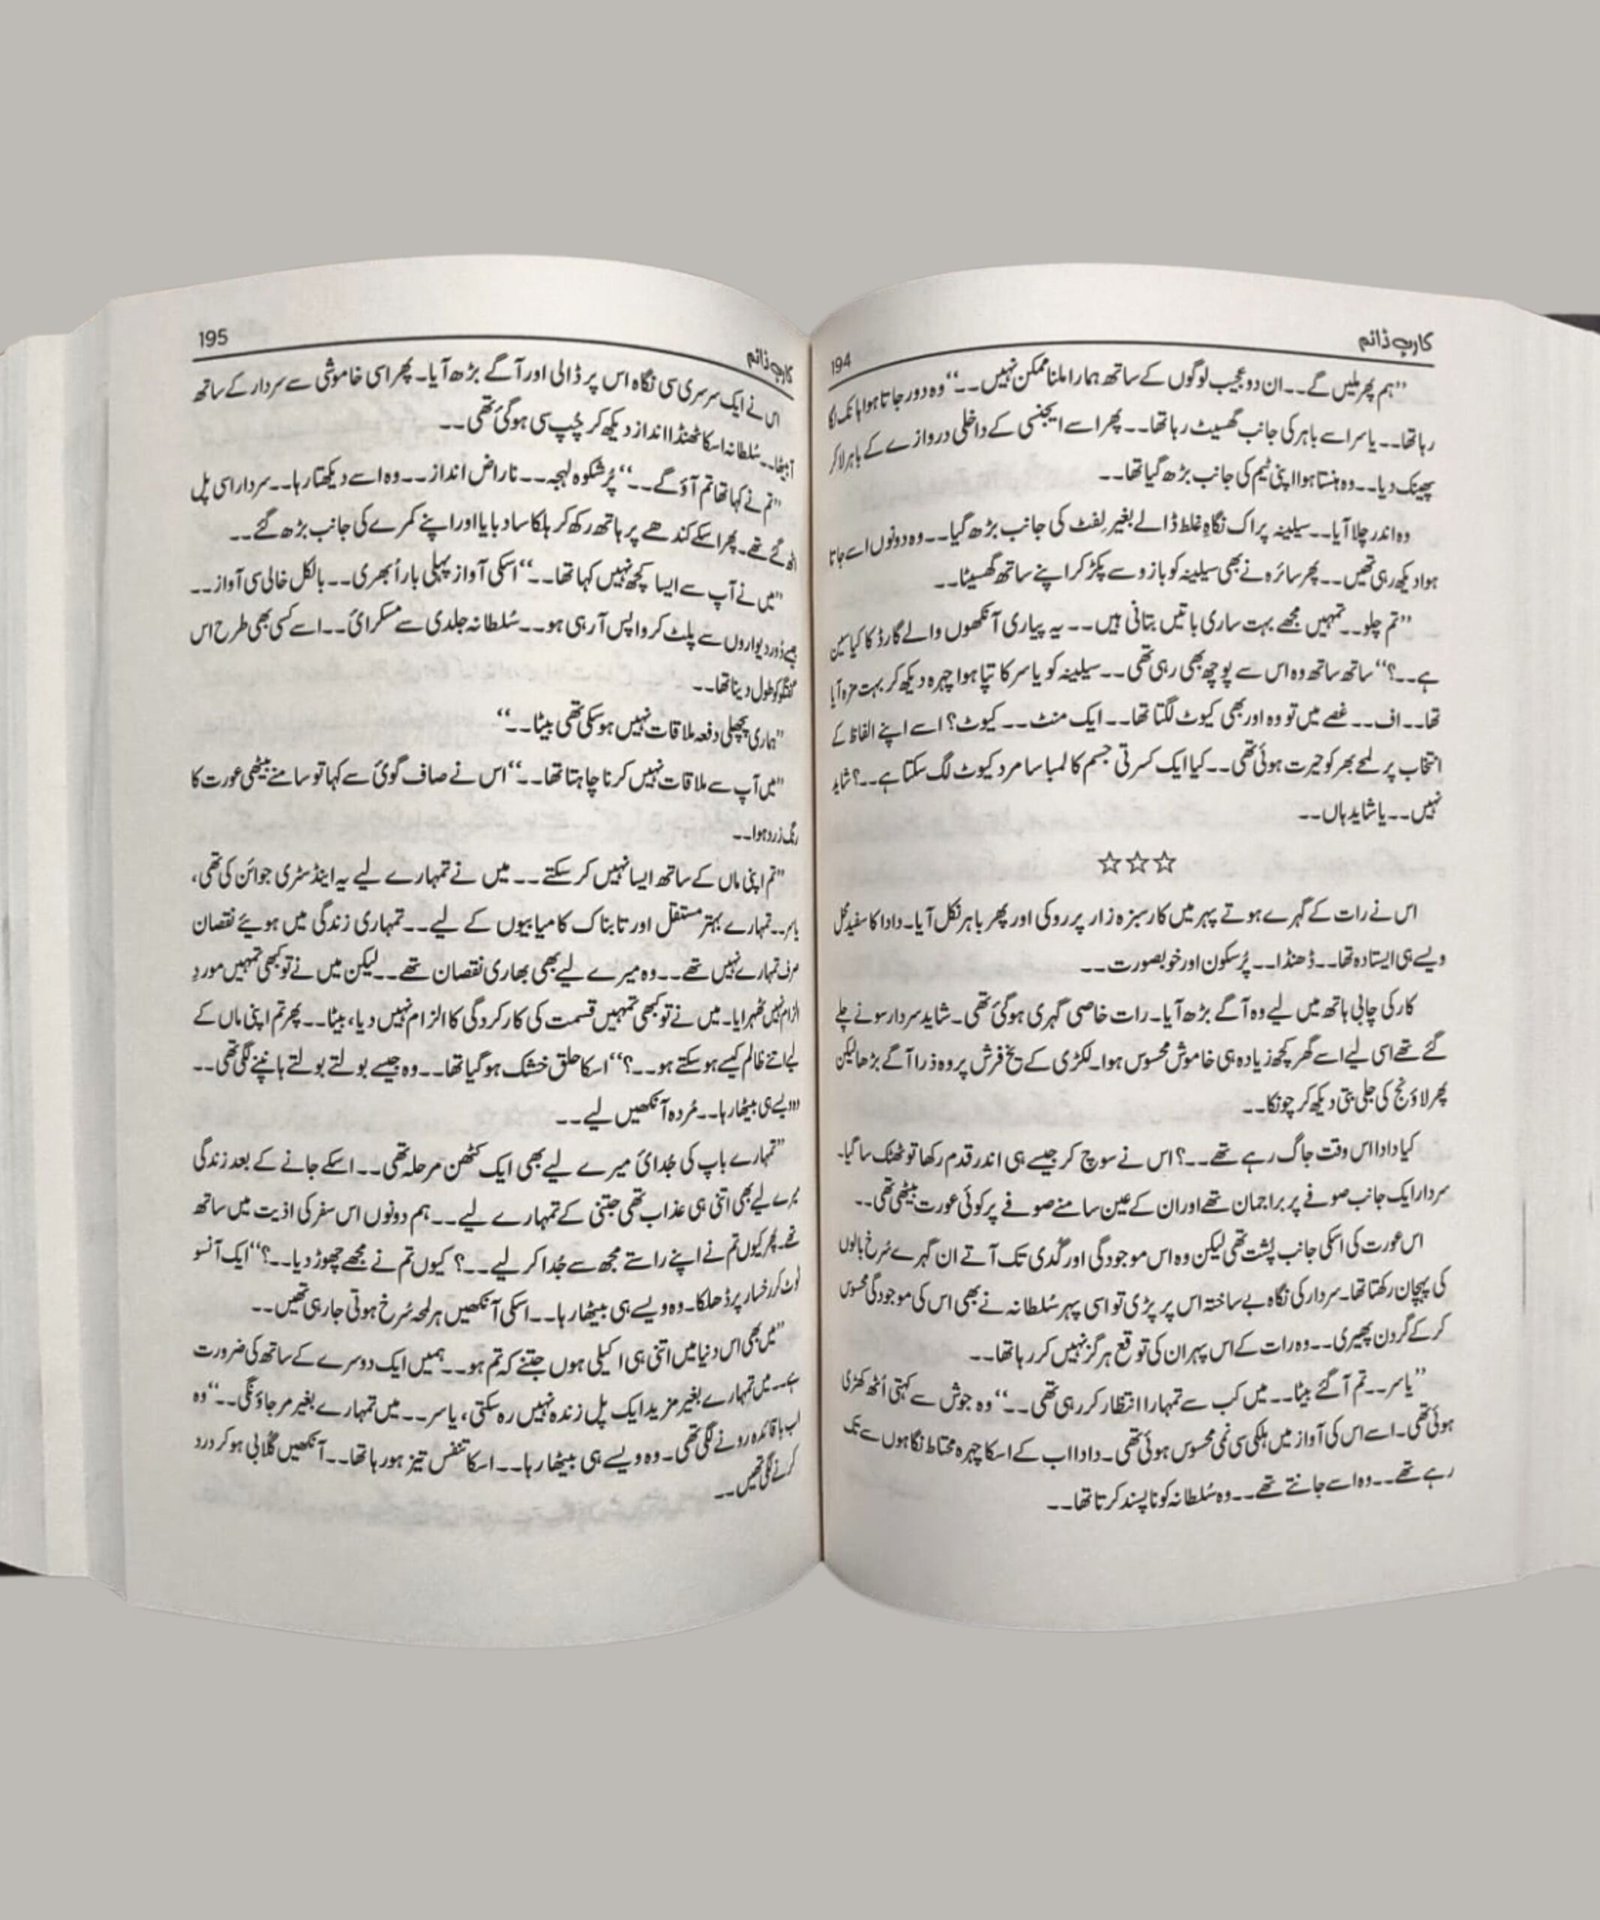 کاربِ ذائم
194
”ہم پھر ملیں گے۔۔ان دو عجیب لوگوں کے ساتھ ہمارا ملنا ممکن نہیں۔۔“وہ دور جاتا ہوا ہانک لگا
رہا تھا۔۔یاسر اسے باہر کی جانب گھسیٹ رہا تھا۔۔پھر اسے ایجنسی کے داخلی دروازے کے باہر لا کر
پھینک دیا۔۔وہ ہنستا ہوا اپنی ٹیم کی جانب بڑھ گیا تھا۔۔
وہ اندر چلا آیا۔۔سیلینہ پر اک نگاہِ غلط ڈالے بغیر لفٹ کی جانب بڑھ گیا۔۔وہ دونوں اسے جاتا
ہوا دیکھ رہی تھیں۔۔پھر سائرہ نے بھی سیلینہ کو بازو سے پکڑ کر اپنے ساتھ گھسیٹا۔۔
”تم چلو۔۔تمہیں مجھے بہت ساری باتیں بتانی ہیں۔۔یہ پیاری آنکھوں والے گارڈ کا کیا سین
ہے۔۔؟“ساتھ ساتھ وہ اس سے پوچھ بھی رہی تھی۔۔سیلینہ کو یاسر کا تپا ہوا چہرہ دیکھ کر بہت مزہ آیا
تھا۔۔اف۔۔غصے میں تو وہ اور بھی کیوٹ لگتا تھا۔۔ایک منٹ۔۔کیوٹ؟اسے اپنے الفاظ کے
انتخاب پر لمحے بھر کو حیرت ہوئی تھی۔۔کیا ایک کسرتی جسم کا لمبا سا مرد کیوٹ لگ سکتا ہے۔۔؟شاید
نہیں۔۔یا شاید ہاں۔۔
☆☆☆
اس نے رات کے گہرے ہوتے پہر میں کار سبزہ زار پر روکی اور پھر باہر نکل آیا۔دادا کا سفید محل
ویسے ہی ایستادہ تھا۔۔ڈھنڈا۔۔پُرسکون اور خوبصورت۔۔
کار کی چابی ہاتھ میں لیے وہ آگے بڑھ آیا۔رات خاصی گہری ہوگئی تھی۔شاید سردار سونے چلے
گئے تھے اسی لیے اسے گھر کچھ زیادہ ہی خاموش محسوس ہوا۔لکڑی کے یخ فرش پر وہ ذرا آگے بڑھا لیکن
پھر لاؤنج کی جلی بتی دیکھ کر چونکا۔۔
کیا دادا اس وقت جاگ رہے تھے۔۔؟اس نے سوچ کر جیسے ہی اندر قدم رکھا تو ٹھٹک سا گیا۔
سردار ایک جانب صوفے پر براجمان تھے اور ان کے عین سامنے صوفے پر کوئی عورت بیٹھی تھی۔۔
اس عورت کی اسکی جانب پُشت تھی لیکن وہ اس موجودگی اور گُدی تک آتے ان گہرے سُرخ بالوں
کی پہچان رکھتا تھا۔سردار کی نگاہ بے ساختہ اس پر پڑی تو اسی پہر سُلطانہ نے بھی اس کی موجودگی محسوس
کر کے گردن پھیری۔۔وہ رات کے اس پہر ان کی توقع ہرگز نہیں کر رہا تھا۔۔
”یاسر۔۔تم آگئے بیٹا۔۔میں کب سے تمہارا انتظار کر رہی تھی۔۔“وہ جوش سے کہتی اُٹھ کھڑی
ہوئی تھی۔اسے اس کی آواز میں ہلکی سی نمی محسوس ہوئی تھی۔دادا اب کے اسکا چہرہ محتاط نگاہوں سے تک
رہے تھے۔۔وہ اسے جانتے تھے۔۔وہ سُلطانہ کو ناپسند کرتا تھا۔۔
کاربِ ذائم
195
اس نے ایک سرسری سی نگاہ اس پر ڈالی اور آگے بڑھ آیا۔پھر اسی خاموشی سے سردار کے ساتھ
آبیٹھا۔۔سُلطانہ اسکا ٹھنڈا انداز دیکھ کر چُپ سی ہوگئی تھی۔۔
”تم نے کہا تھا تم آؤ گے۔۔“پُر شکوہ لہجہ۔۔ناراض انداز۔۔وہ اسے دیکھتا رہا۔۔سردار اسی پل
اٹھ گئے تھے۔پھر اسکے کندھے پر ہاتھ رکھ کر ہلکا سا دبایا اور اپنے کمرے کی جانب بڑھ گئے۔۔
”میں نے آپ سے ایسا کچھ نہیں کہا تھا۔۔“اسکی آواز پہلی بار اُبھری۔۔بالکل خالی سی آواز۔۔
جیسے دُور دیواروں سے پلٹ کر واپس آرہی ہو۔۔سُلطانہ جلدی سے مسکرائی۔۔اسے کسی بھی طرح اس
گفتگو کو طول دینا تھا۔۔
”ہماری پچھلی دفعہ ملاقات نہیں ہوسکی تھی بیٹا۔۔“
”میں آپ سے ملاقات نہیں کرنا چاہتا تھا۔۔“اس نے صاف گوئی سے کہا تو سامنے بیٹھی عورت کا
رنگ زرد ہوا۔۔
”تم اپنی ماں کے ساتھ ایسا نہیں کرسکتے۔۔میں نے تمہارے لیے یہ اینڈسٹری جوائن کی تھی،
یاسر۔۔تمہارے بہتر مستقل اور تابناک کامیابیوں کے لیے۔۔تمہاری زندگی میں ہوئے نقصان
صرف تمہارے نہیں تھے۔۔وہ میرے لیے بھی بھاری نقصان تھے۔۔لیکن میں نے تو کبھی تمہیں موردِ
الزام نہیں ٹھہرایا۔میں نے تو کبھی تمہیں قسمت کی کارکردگی کا الزام نہیں دیا، بیٹا۔۔پھر تم اپنی ماں کے
لیے اتنے ظالم کیسے ہوسکتے ہو۔۔؟“اسکا حلق خشک ہوگیا تھا۔۔وہ جیسے بولتے بولتے ہانپنے لگی تھی۔۔
وہ ویسے ہی بیٹھا رہا۔۔مُردہ آنکھیں لیے۔۔
”تمہارے باپ کی جُدائی میرے لیے بھی ایک کٹھن مرحلہ تھی۔۔اسکے جانے کے بعد زندگی
میرے لیے بھی اتنی ہی عذاب تھی جتنی کے تمہارے لیے۔۔ہم دونوں اس سفر کی اذیت میں ساتھ
تھے۔پھر کیوں تم نے اپنے راستے مجھ سے جُدا کر لیے۔۔؟ کیوں تم نے مجھے چھوڑ دیا۔۔؟“ایک آنسو
ٹوٹ کر رخسار پر ڈھلکا۔وہ ویسے ہی بیٹھا رہا۔۔اسکی آنکھیں ہر لمحہ سُرخ ہوتی جارہی تھیں۔۔
”میں بھی اس دنیا میں اتنی ہی اکیلی ہوں جتنے کہ تم ہو۔۔ہمیں ایک دوسرے کے ساتھ کی ضرورت
ہے۔۔میں تمہارے بغیر مزید ایک پل زندہ نہیں رہ سکتی، یاسر۔۔میں تمہارے بغیر مر جاؤنگی۔۔“وہ
اب باقائدہ رونے لگی تھی۔وہ ویسے ہی بیٹھا رہا۔۔اسکا تنفس تیز ہو رہا تھا۔۔آنکھیں گلابی ہو کر درد
کرنے لگی تھیں۔۔